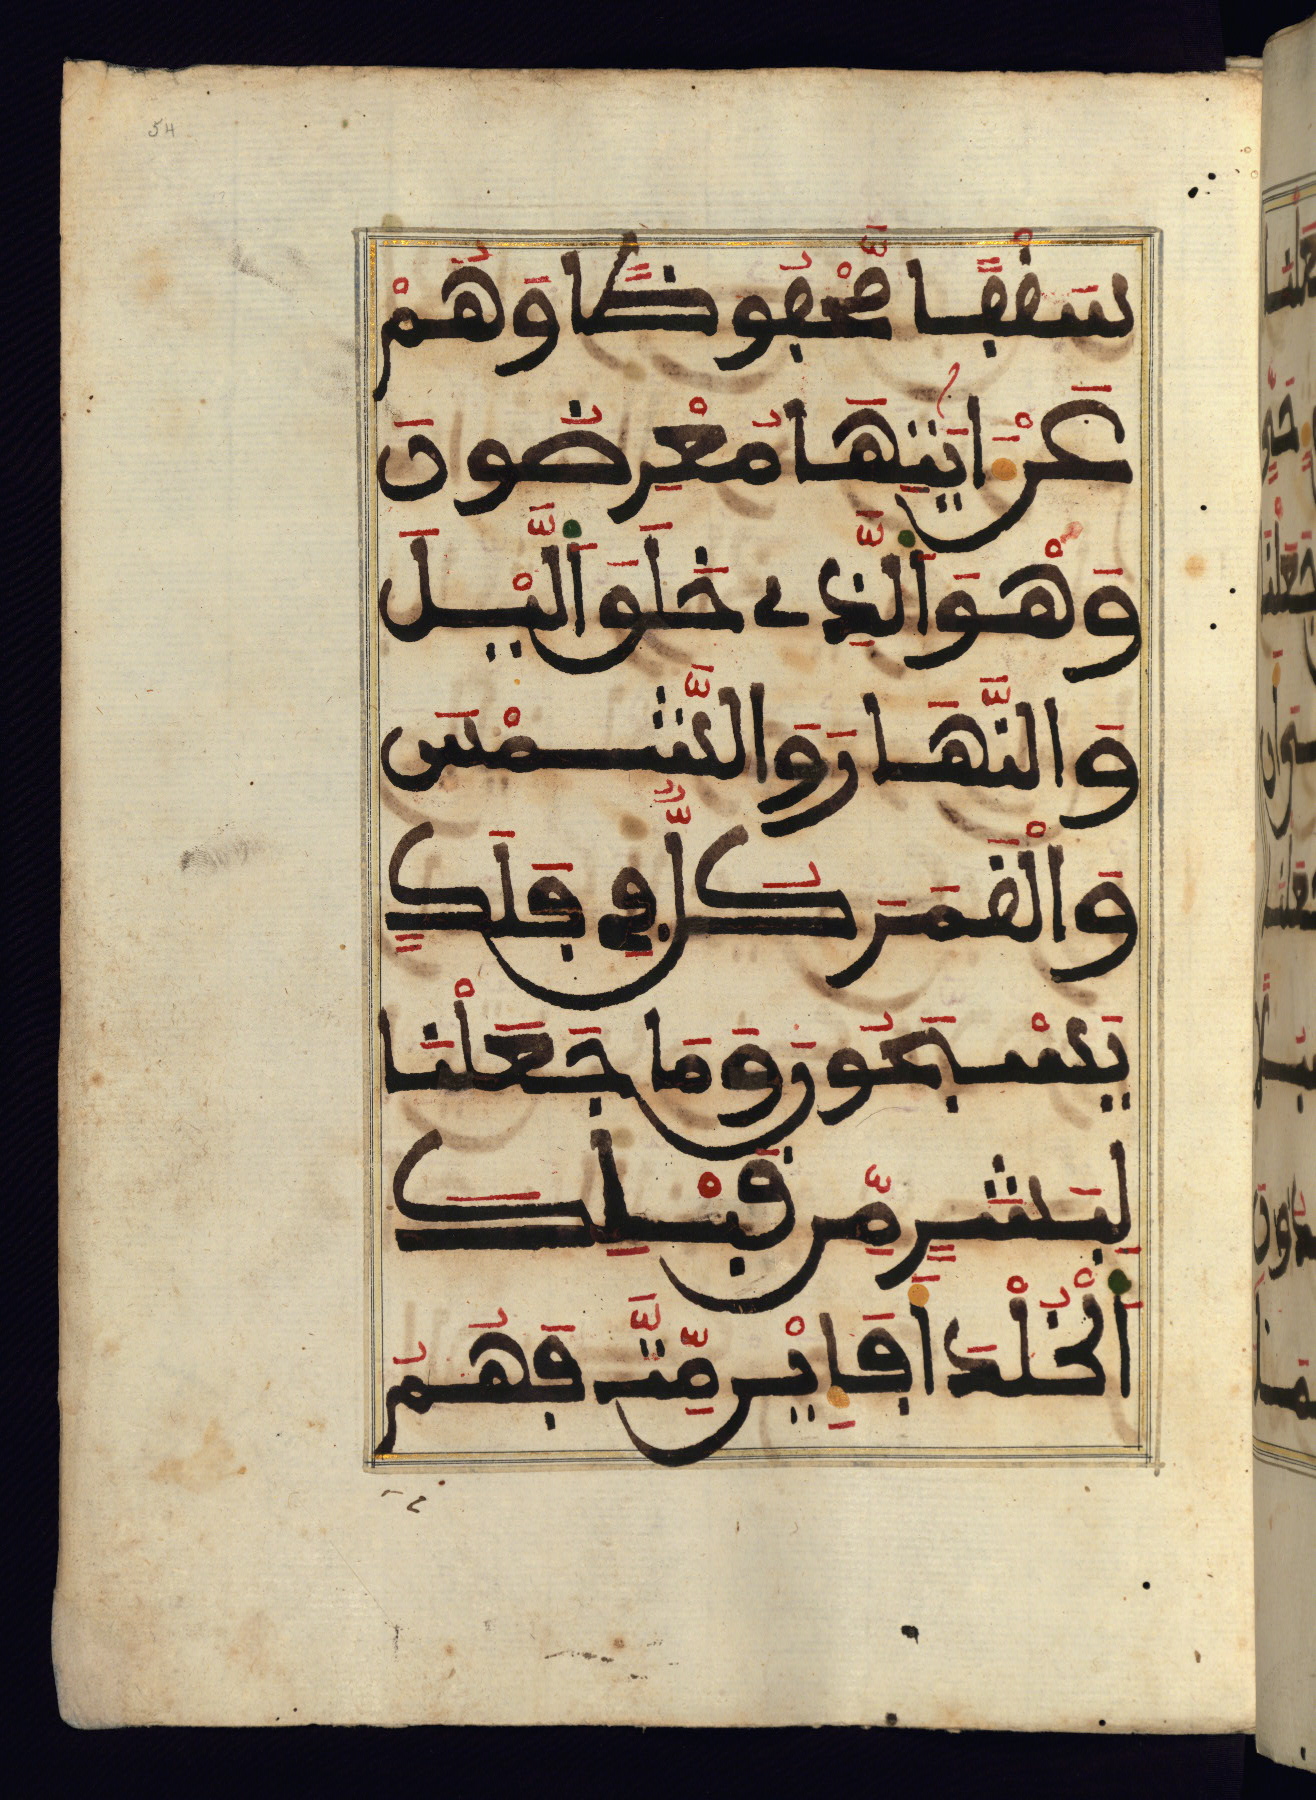 54
سَقْفًا مَّحْفُوظًا وَهُمْ
عَنْ ءَايَٰتِهَا مُعْرِضُونَ
وَهْوَ ٱلَّذِے خَلَقَ ٱلَّيْلَ
وَالنَّهَارَ وَالشَّمْسَ
وَالْقَمَرَ كُلٌّ فِي فَلَكٍ
يَسْبَحُونَ وَمَا جَعَلْنَا
لِبَشَرٍ مِّن قَبْلِكَ
ٱلْخُلْدَ أَفَإِيْن مِّتَّ فَهُمُ